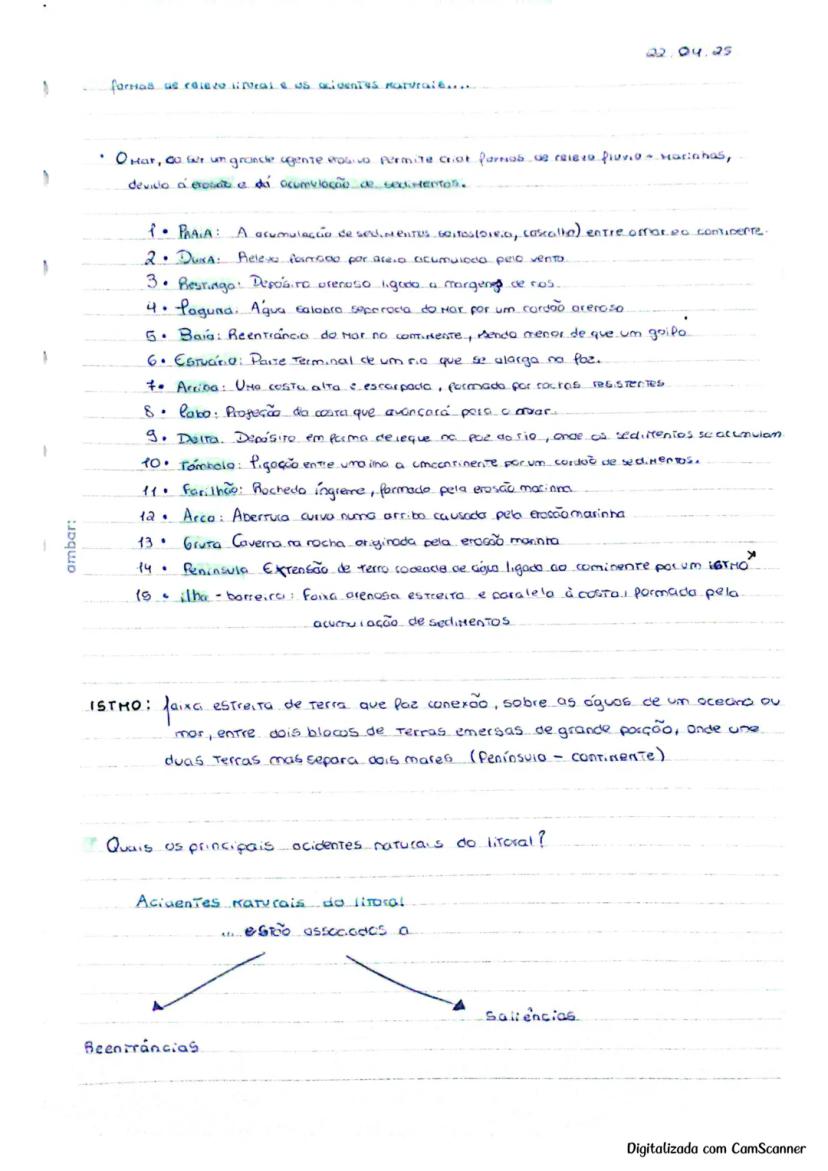 22.04.25
formas de relevo litoral e os acidentes naturais....
• O mar, ao ser um grande agente erosivo permite criar formas de relevo fluvio - marinhas,
devido á erosão e dá acumulação de sedimentos.
1 • PRAIA: A acumulação de sedimentos soltos (areia, cascalho) entre o mar e o continente.
2 • Duna: Relevo formado por areia acumulada pelo vento
3 • Restinga: Depósito arenoso ligado a margens de rios.
4 • Laguna: Água salobra separada do mar por um cordão arenoso
5 • Baía: Reentrância do mar no continente, sendo menor de que um golfo
6 • Estuário: Parte terminal de um rio que se alarga na foz.
7 • Arriba: Uma costa alta e escarpada, formada por rochas resistentes
8 • Cabo: Projeção da costa que avançará para o mar.
9 • Delta. Depósito em forma de leque na foz do rio, onde os sedimentos se acumulam
10 • Tômbolo: Ligação entre uma ilha a um continente por um cordão de sedimentos.
11 • Farilhão: Rochedo íngreme, formado pela erosão marinha
12 • Arco: Abertura curva numa arriba causada pela erosão marinha
13 • Gruta Caverna na rocha originada pela erosão marinha
14 • Península Extensão de terra rodeada de água ligada ao continente por um ISTMO
15 • ilha - barreira: Faixa arenosa estreita e paralela à costa, formada pela
acumulação de sedimentos
ambar:
ISTMO: faixa estreita de terra que faz conexão, sobre as águas de um oceano ou
mar, entre dois blocos de terras emersas de grande porção, onde une
duas terras mas separa dois mares (Península - continente)
Quais os principais acidentes naturais do litoral?
Acidentes naturais do litoral
... estão associados a
Saliências
Reentrâncias
Digitalizada com CamScanner